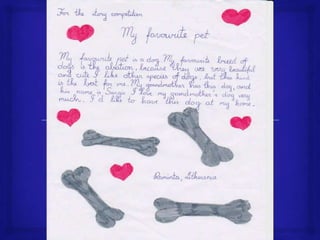 For the story competition
My favourite pet
My favourite pet is a dog. My favourite breed of
dogs is the alsation, because they are very beautiful
and cute. I like other species of dogs, but this kind
is the best for me. My grandmother has this dog, and
his name is Sargis. I love my grandmother's dog very
much. I'd like to have this dog at my home.
Raminta, Lithuania